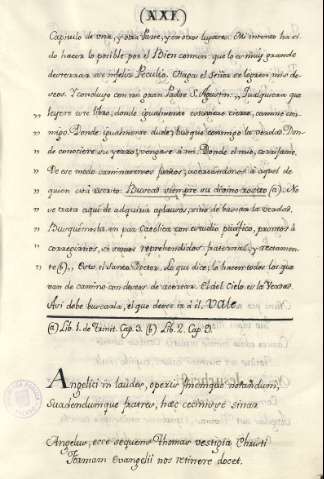 (XXI.)
Capitulo de una, y otra Parte, y en otros lugares. Mi intento ha si
do hacer lo posible por el Bien comun, que lo es muy grande
desterrar
Peculio. Haga el Señor se logren mis de
seos. Y concluyo con mi gran Padre S. Agustin. „ Qualquiera que
leyere este libro, donde igualmente estuviere cierto, camine con
„ migo. Donde igualmente dude, busque conmigo la verdad. Don
„ de conociere su yerro, vengase à mi. Donde el mio, corrijame.
„ De ese modo caminaremos juntos, acercandonos à aquel de
„ quien està escrito: Buscad siempre su divino rostro (a). No
„ se trata aqui de adquirir aplausos, sino de buscar la verdad.
„ Busquemosla en paz Catolica con estudio pacifico, prontos à
„ corregirnos, si somos reprehendidos fraternal, y rectamente
„ (b). „ Esto el Santo Doctor. Lo que dice, lo hacen todos los que
van de camino con deseos de acertar. El del Cielo es la Verdad.
Asi debe buscarla, el que desee ir à èl. Vale.
(a) Lib. 1. de Trinit. Cap. 3. (b) Lib. 2. Cap. 9.
Angelici in laudes, operis hincque notandum,
Suadendumque fratres, hæc cecinisse sinas
Angelus, ecce sequens Thomas vestigia Christi
Formam Evangelii nos retinere docet.